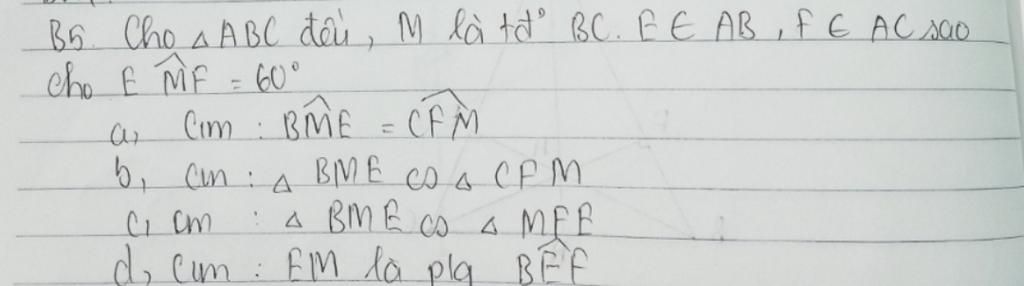 B5. Cho △ABC đều, M là tđ° BC. E ∈ AB, F ∈ AC sao
cho EM̂F = 60°
a, Cm : BM̂E = CF̂M
b, Cm : △ BME ∽ △ CFM
c, cm : △ BME ∽ △ MFE
d, Cm : EM là plg BÊF